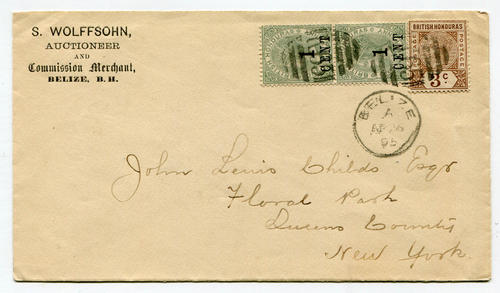 S. WOLFFSOHN,
AUCTIONEER
AND
Commission Merchant,
BELIZE, B. H.
1 CENT
1 CENT
BRITISH HONDURAS
POSTAGE
3 c
BELIZE
A
95
John Lewis Childs Esqr
Floral Park
Queens County
New York.